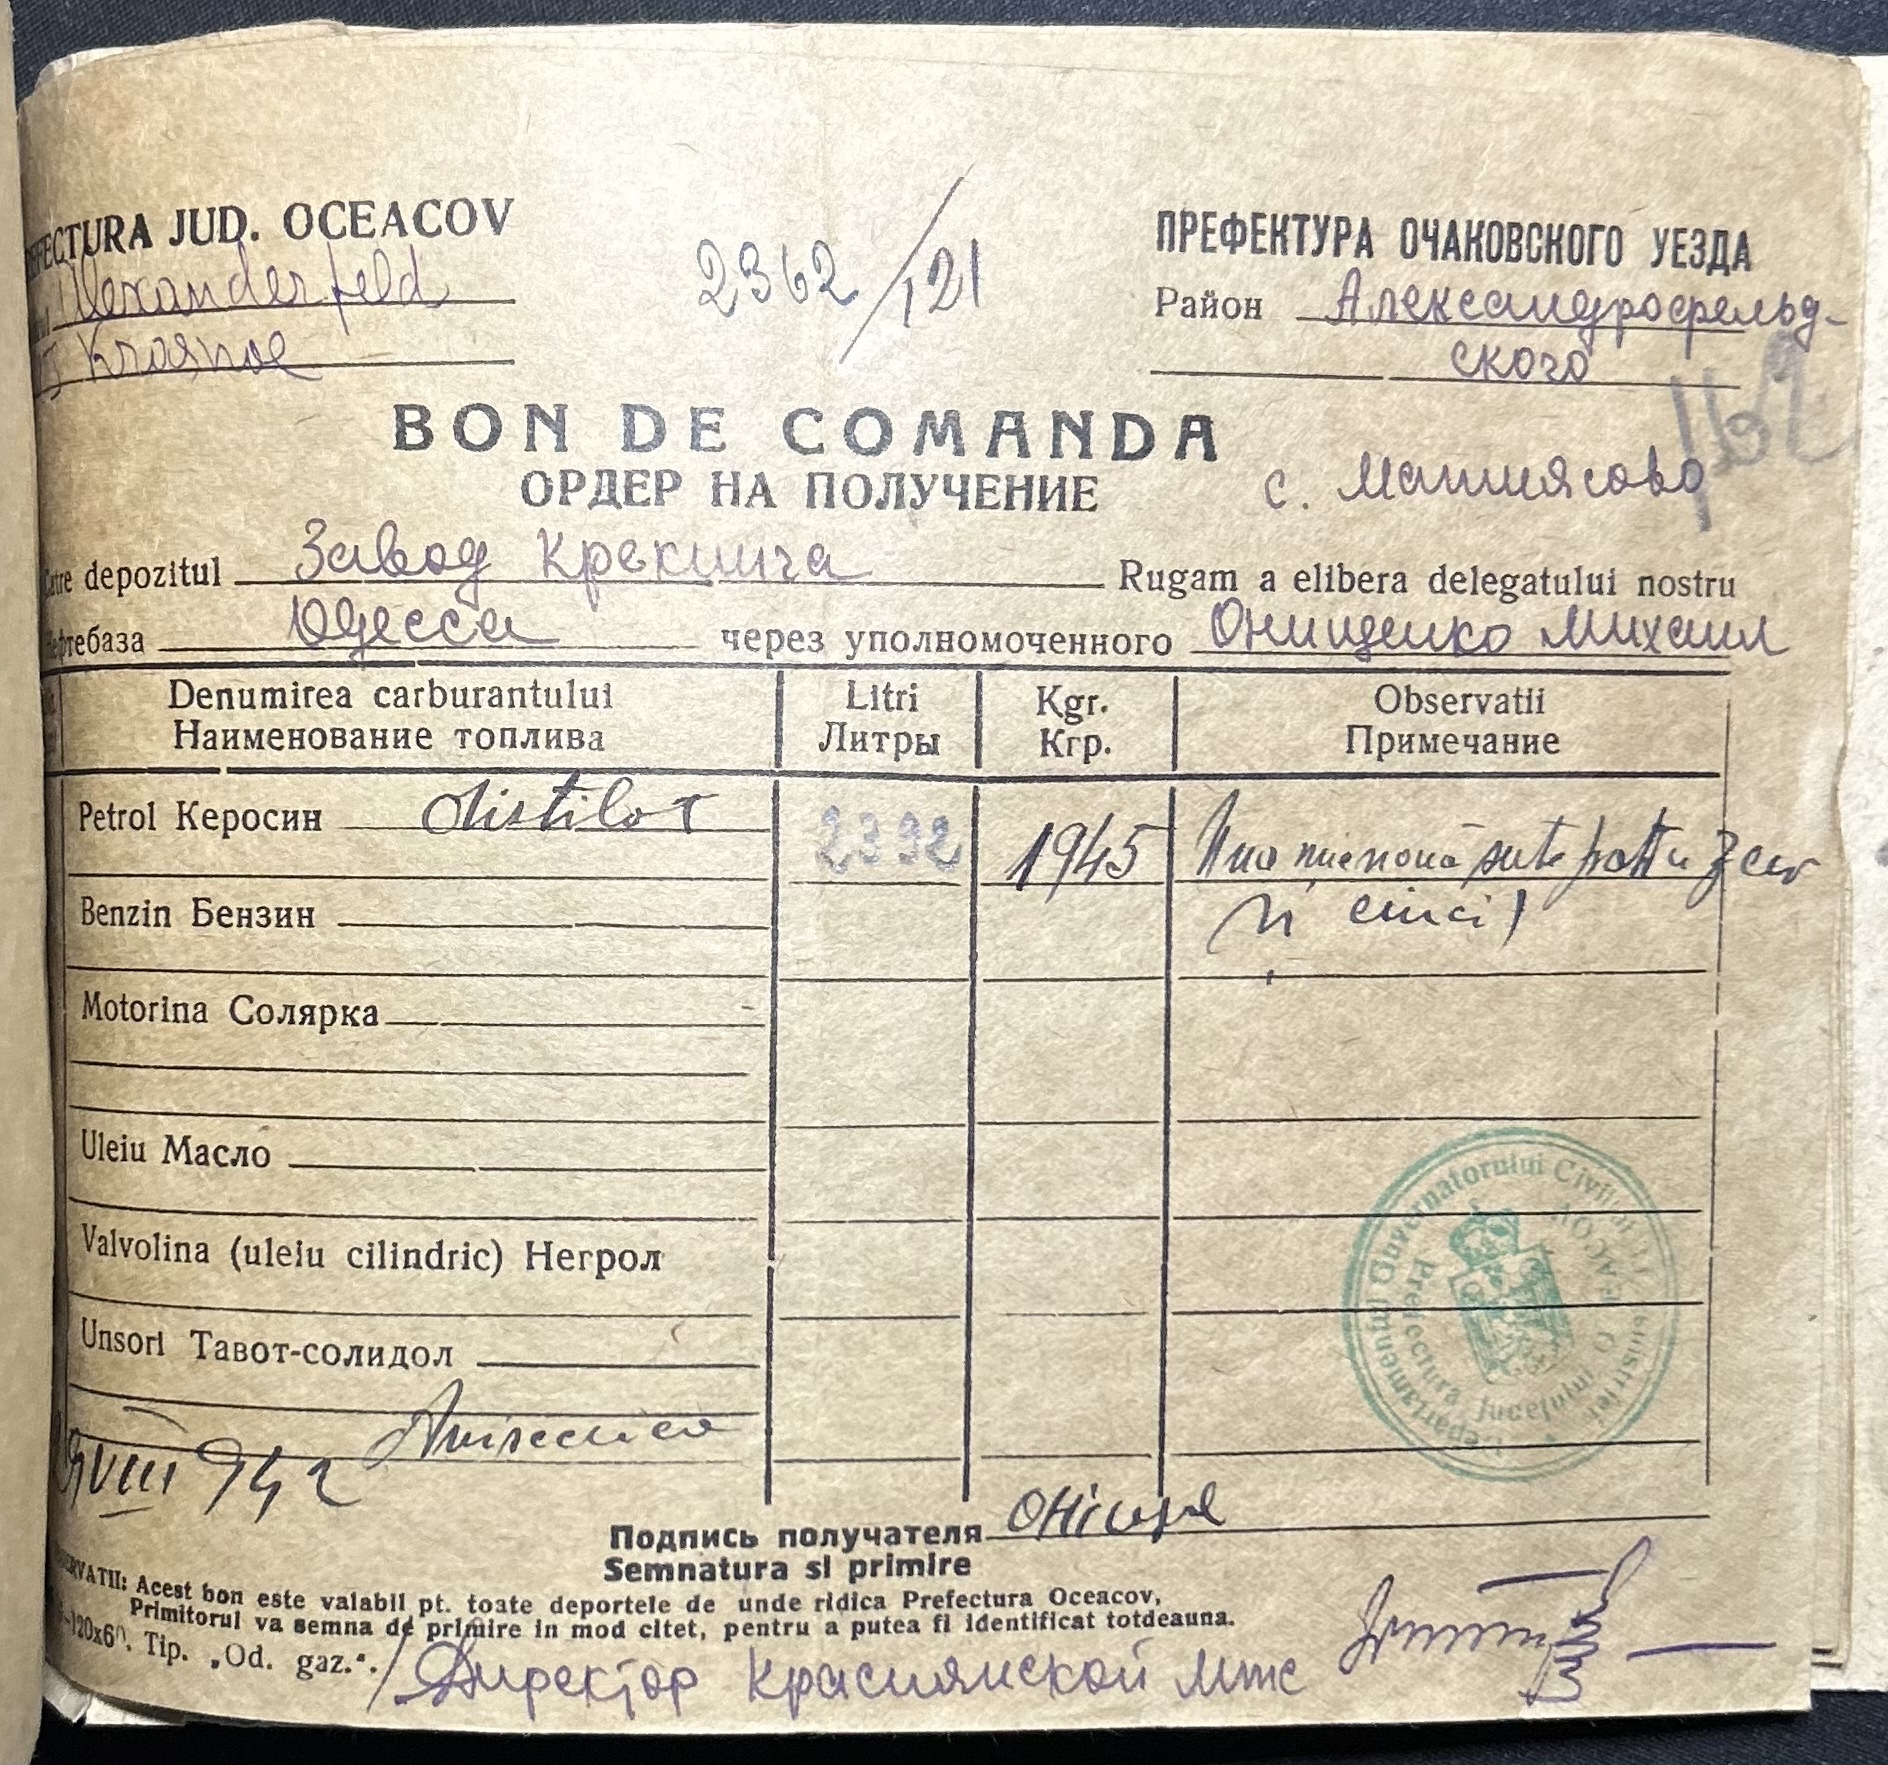 FECTURA JUD. OCEACOV
Alexanderfeld
Krasnoe
2362/121
ПРЕФЕКТУРА ОЧАКОВСКОГО УЕЗДА
Район Александрофельд-
ского
BON DE COMANDA
ОРДЕР НА ПОЛУЧЕНИЕ
с.
Catre depozitul Завод Крекинга Rugam a elibera delegatului nostru
Нефтебаза Одесса через уполномоченного Онищенко Михаил
Denumirea carburantului Litri Kgr. Observatii
Наименование топлива Литры Кгр. Примечание
Petrol Керосин distilat 2392 1945 Una mie nouă sute patru zeci
și cinci)
Benzin Бензин
Motorina Солярка
Uleiu Масло
Valvolina (uleiu cilindric) Негрол
Unsori Тавот-солидол
VIII 942
Departamentul Guvernatorului Civil al Transnistriei
Prefectura Județului OCEACOV
Подпись получателя
Semnatura si primire
OBSERVATII: Acest bon este valabil pt. toate deportele de unde ridica Prefectura Oceacov,
Primitorul va semna de primire in mod citet, pentru a putea fi identificat totdeauna.
-120x60. Tip. „Od. gaz.“.
/Директор Краснянской мтс